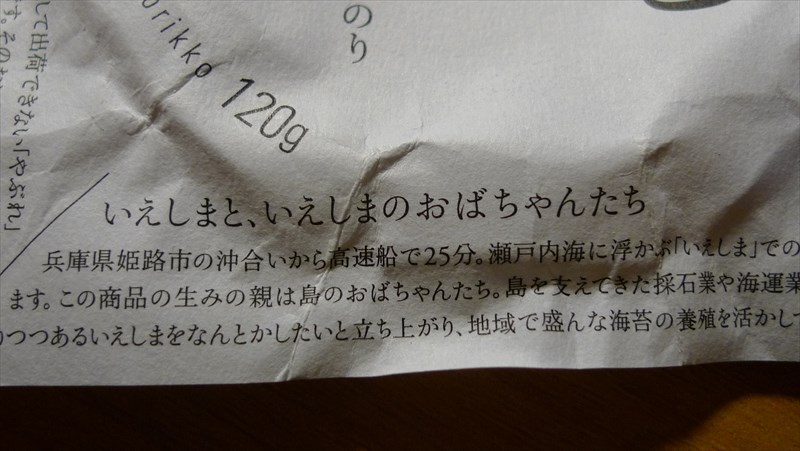 のり
orikko 120g
して出荷できない「やぶれ」
す。その
いえしまと、いえしまのおばちゃんたち
兵庫県姫路市の沖合いから高速船で25分。瀬戸内海に浮かぶ「いえしま」での
ます。この商品の生みの親は島のおばちゃんたち。島を支えてきた採石業や海運業
りつつあるいえしまをなんとかしたいと立ち上がり、地域で盛んな海苔の養殖を活かして